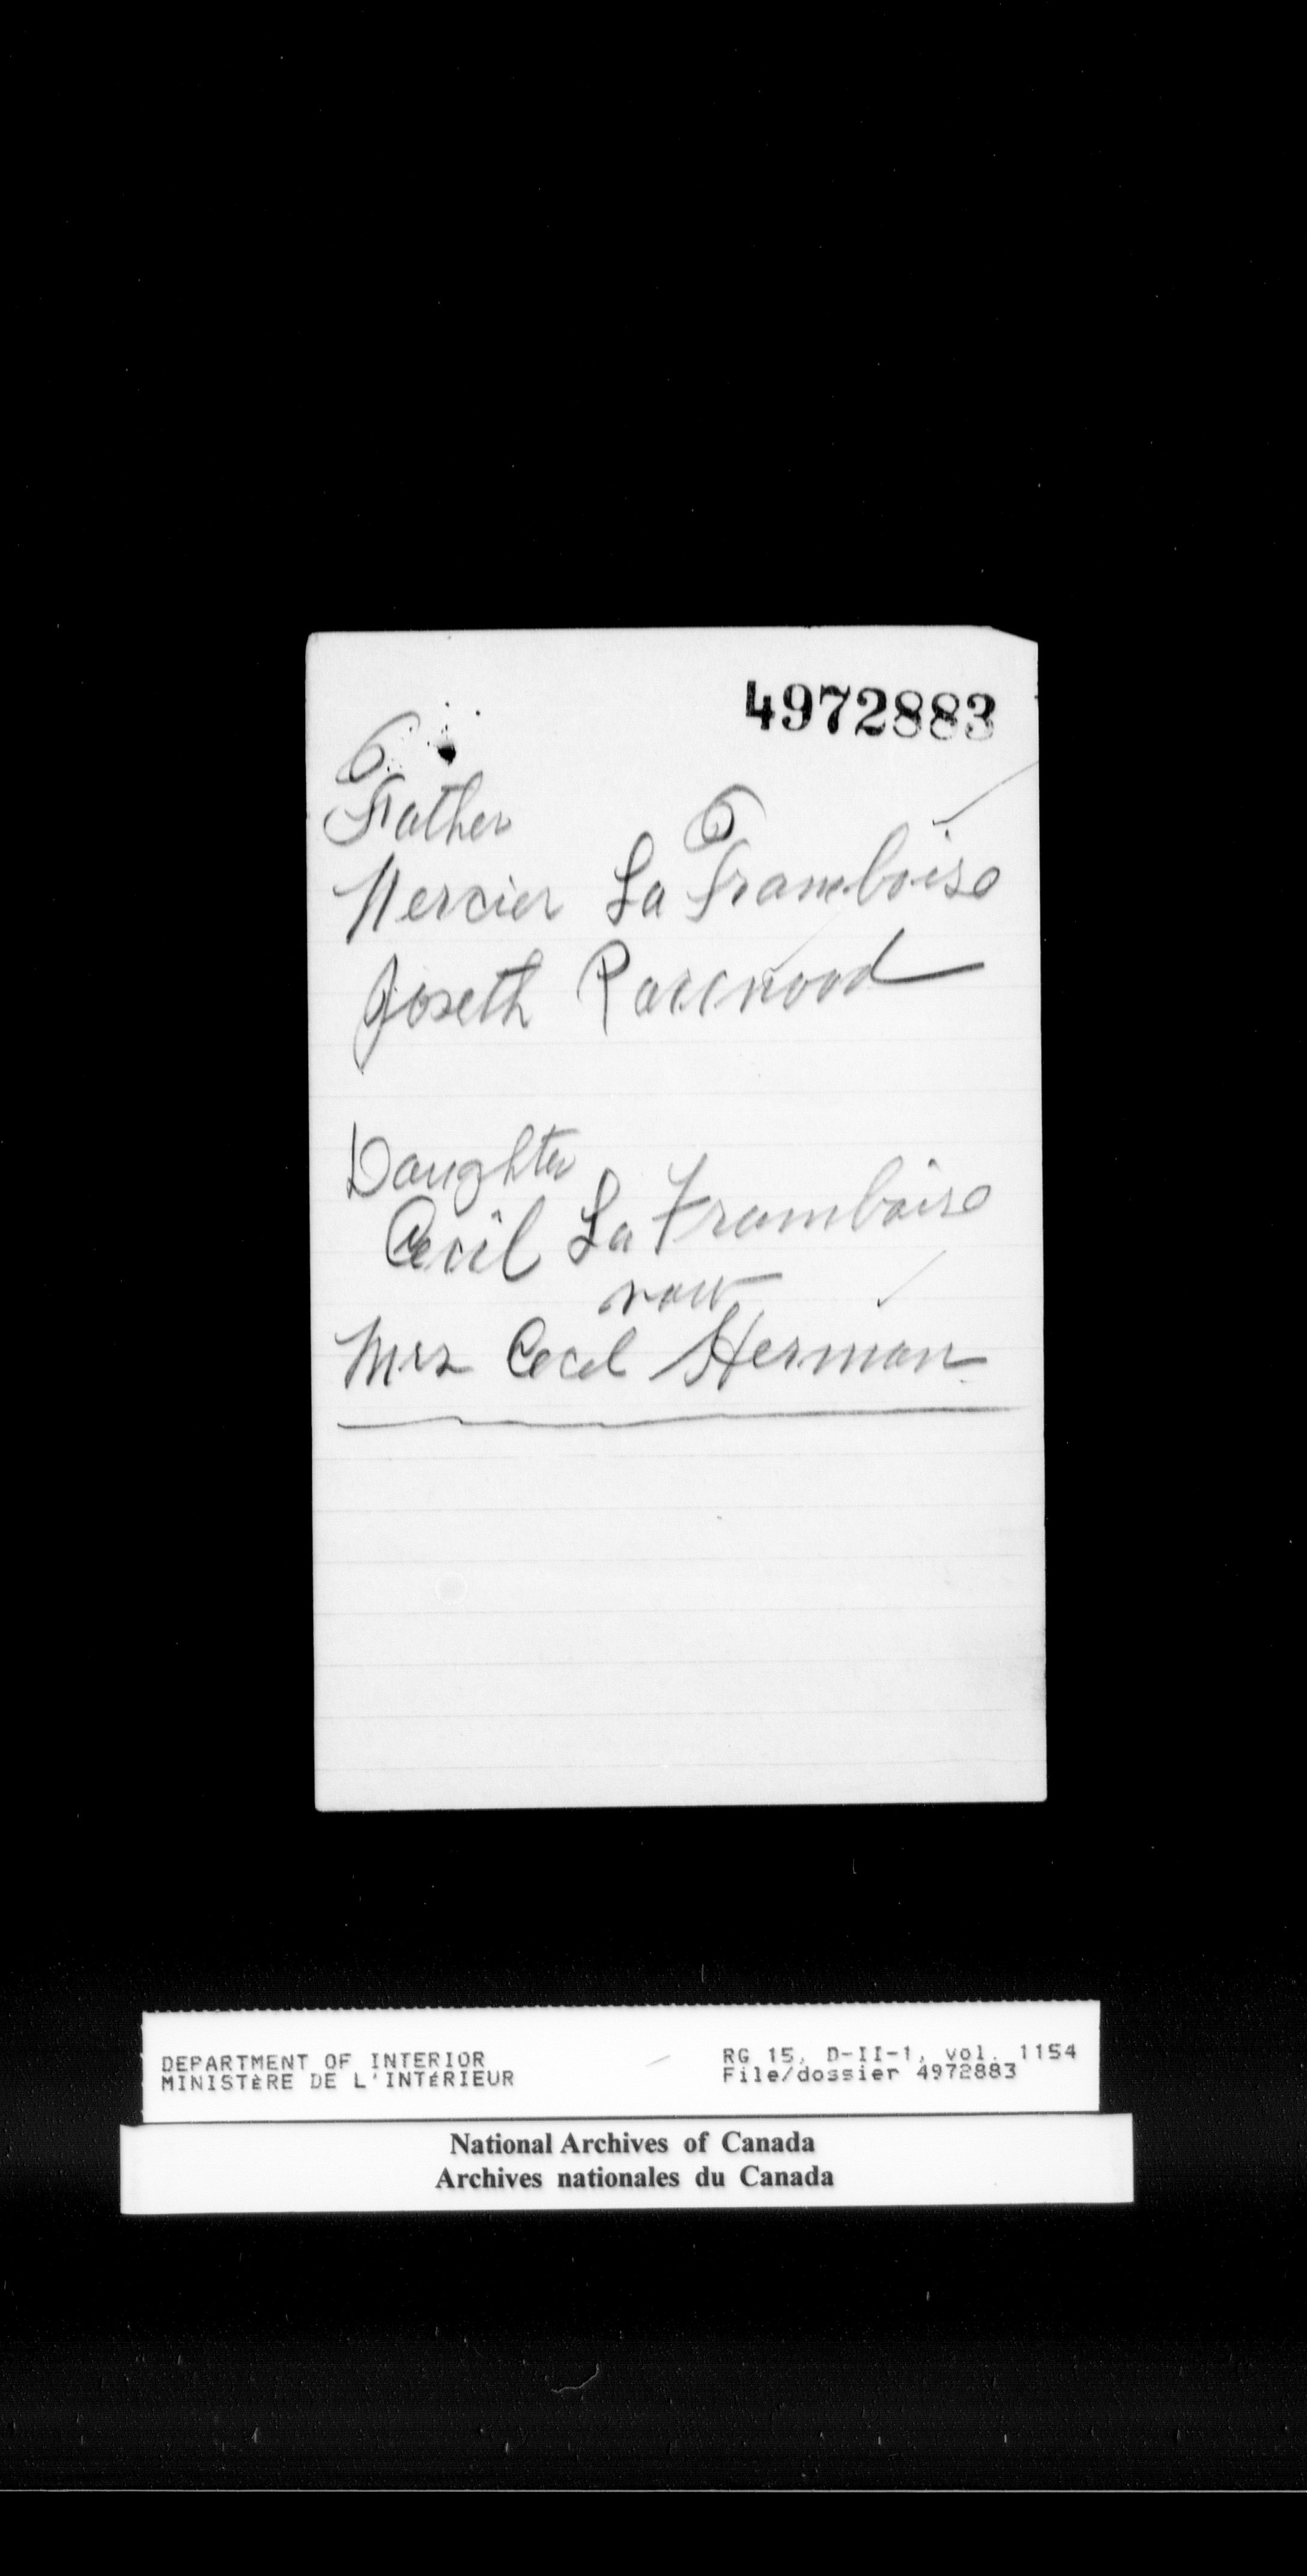 4972883
Father
Mercier La Framboise
Joseth
Daughter
Cecil La Framboise
now
Mrs Cecel Herman
DEPARTMENT OF INTERIOR
MINISTÈRE DE L'INTÉRIEUR
RG 15, D-II-1, vol. 1154
File/dossier 4972883
National Archives of Canada
Archives nationales du Canada